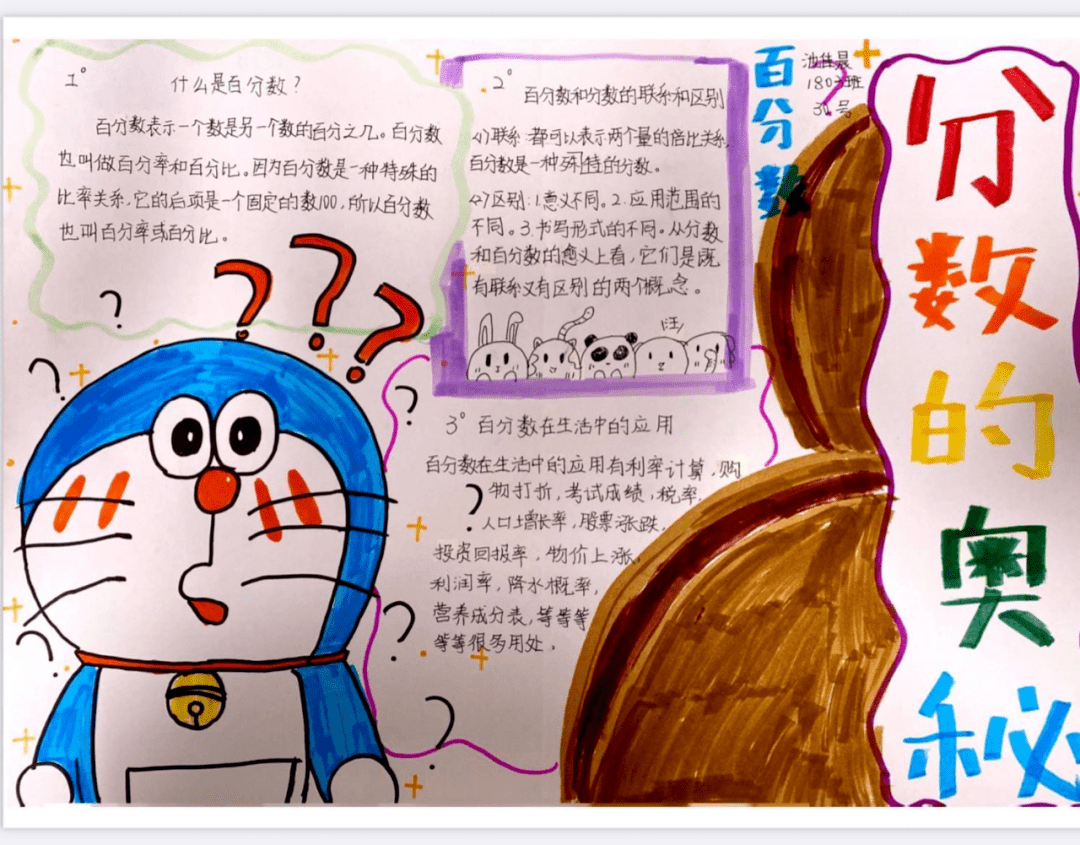 1°
什么是百分数?
百分数表示一个数是另一个数的百分之几。百分数
也叫做百分率和百分比。因为百分数是一种特殊的
比率关系,它的后项是一个固定的数100,所以百分数
也叫百分率或百分比。
2°
百分数和分数的联系和区别
(1)联系:都可以表示两个量的倍比关系,
百分数是一种殊特的分数。
(2)区别:1.意义不同。2.应用范围的
不同。3.书写形式的不同。从分数
和百分数的意义上看,它们是既
有联系又有区别的两个概念。
汪
3°百分数在生活中的应用
百分数在生活中的应用有利率计算,购
物打折,考试成绩,税率,
人口增长率,股票涨跌,
投资回报率,物价上涨,
利润率,降水概率,
营养成分表,等等等
等等很多用处。
百分数
池佳晨
180 班
号
分数的奥秘